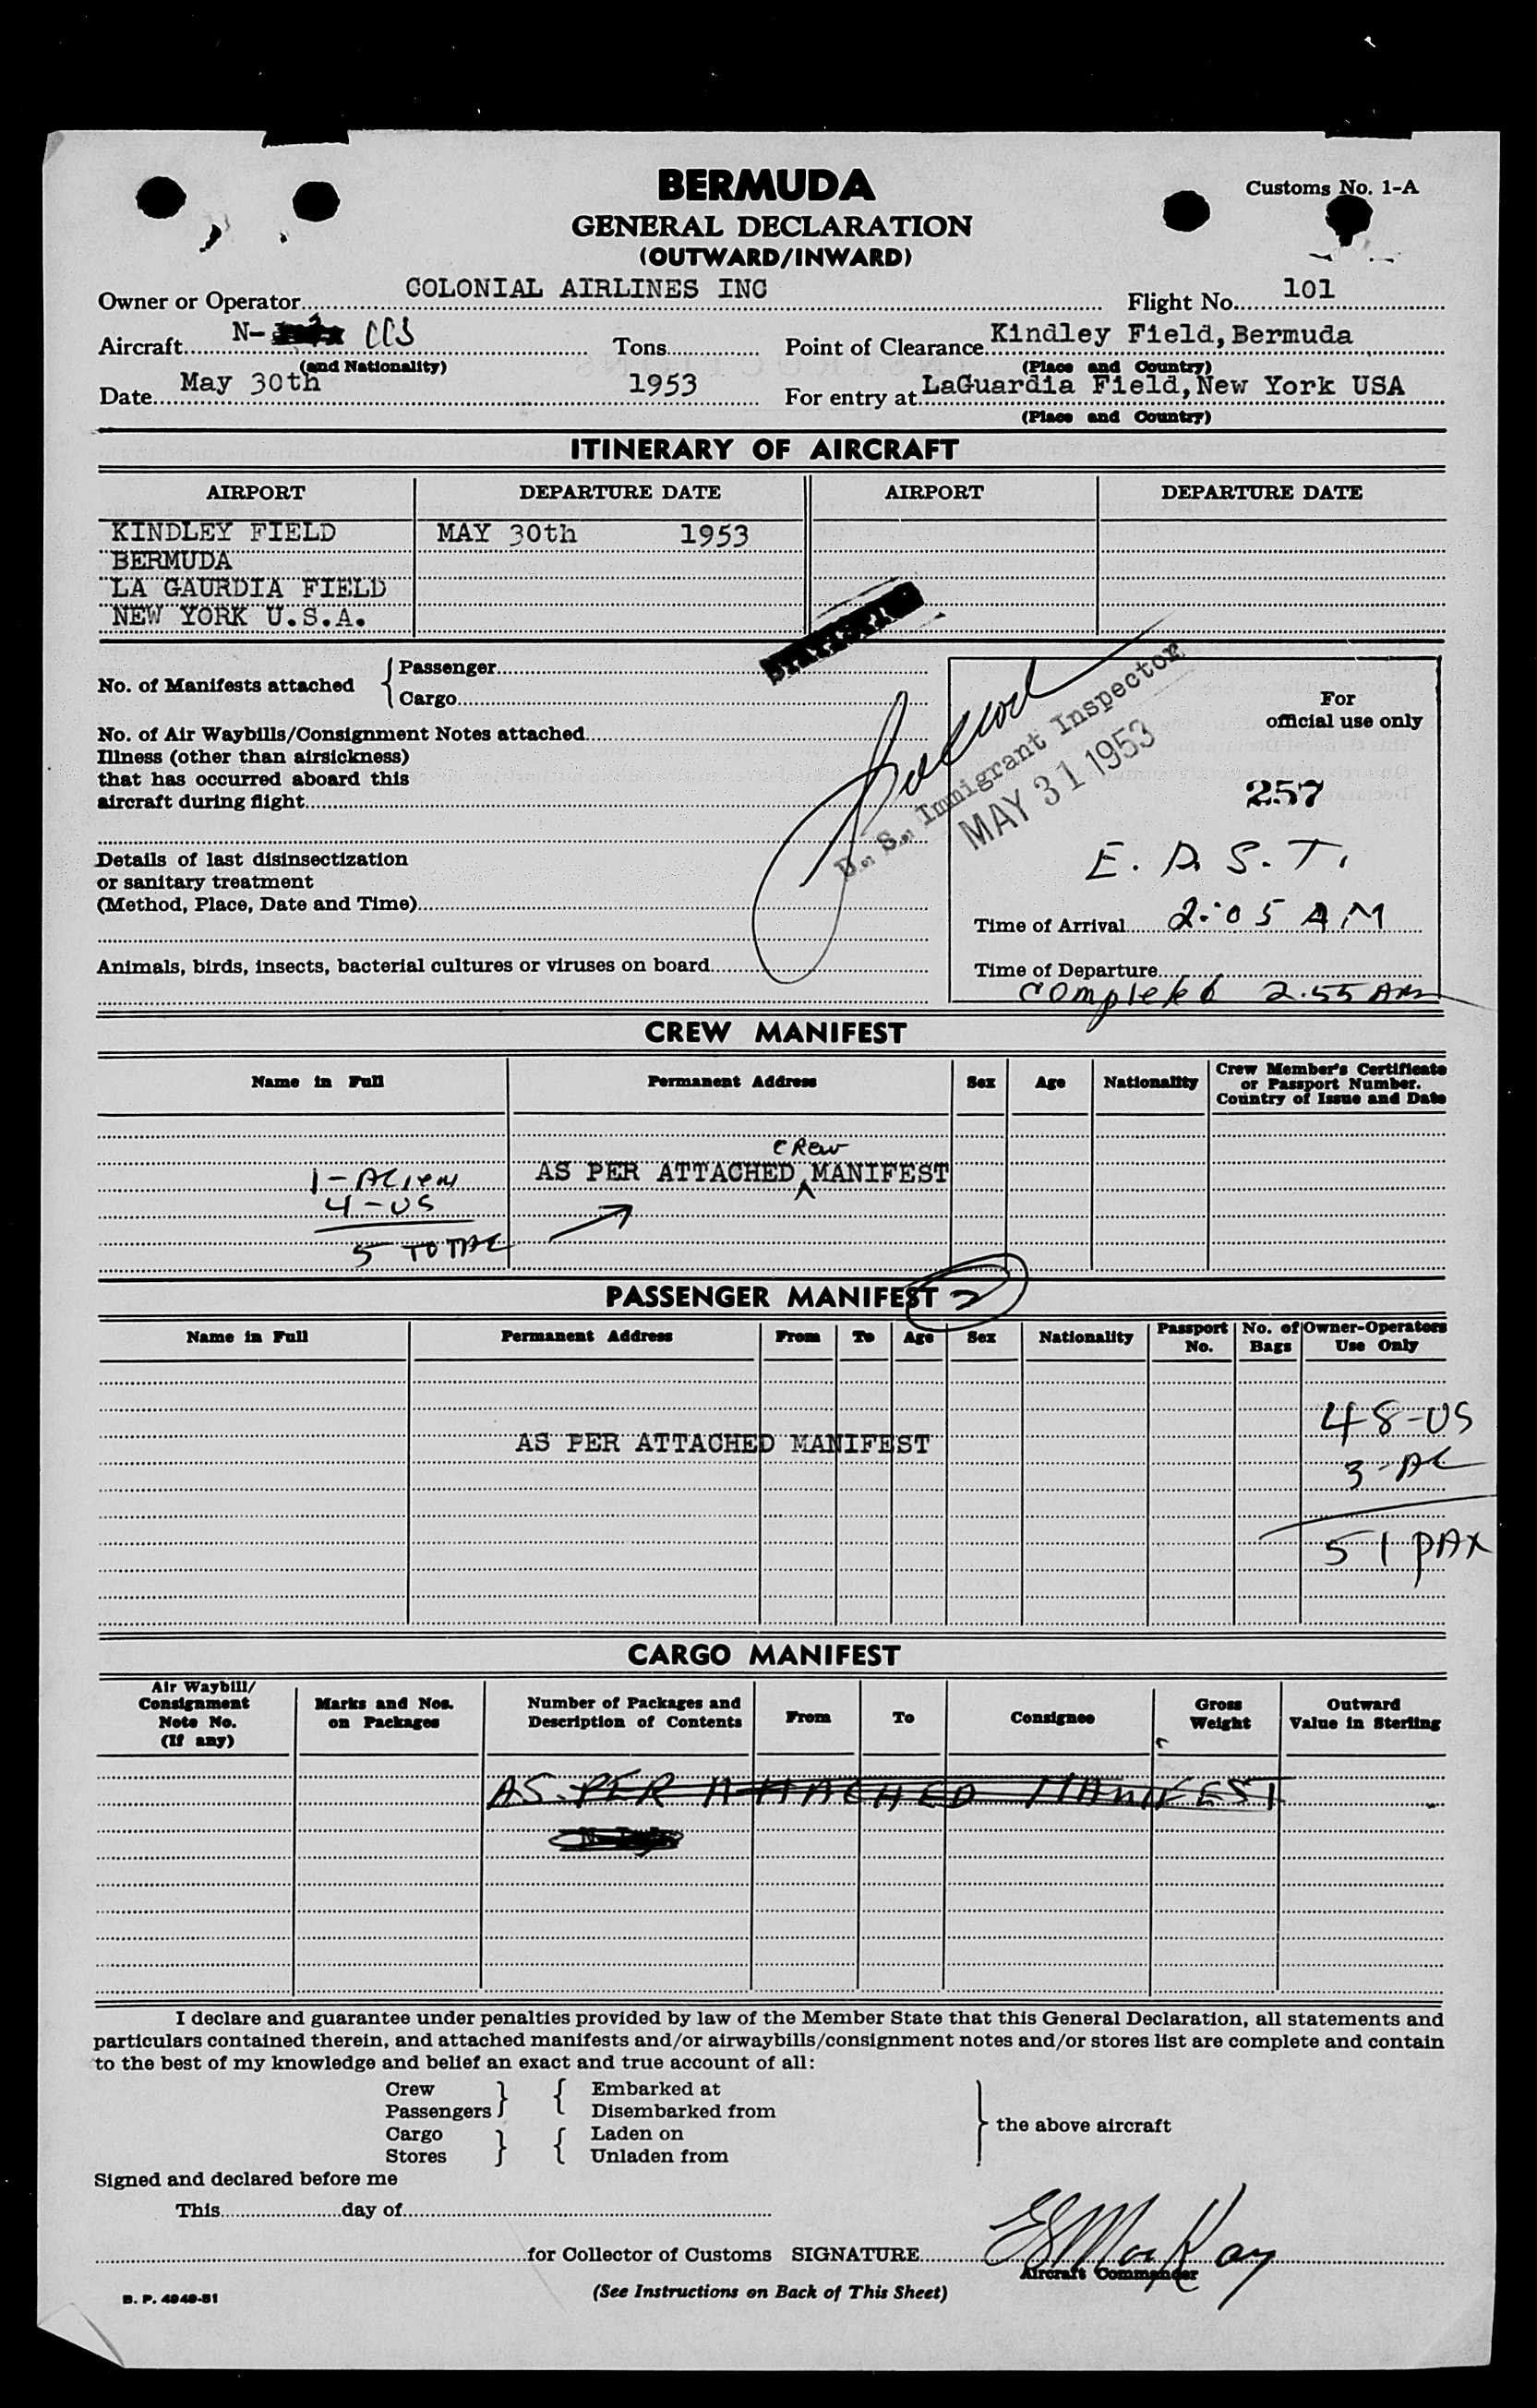 BERMUDA
Customs No. 1-A
GENERAL DECLARATION
(OUTWARD/INWARD)
Owner or Operator COLONIAL AIRLINES INC Flight No. 101
Aircraft N- Tons Point of Clearance Kindley Field, Bermuda
(and Nationality) (Place and Country)
Date May 30th 1953 For entry at LaGuardia Field, New York USA
(Place and Country)
ITINERARY OF AIRCRAFT
AIRPORT DEPARTURE DATE AIRPORT DEPARTURE DATE
KINDLEY FIELD MAY 30th 1953
BERMUDA
LA GAURDIA FIELD
NEW YORK U.S.A.
No. of Manifests attached { Passenger
Cargo
No. of Air Waybills/Consignment Notes attached
Illness (other than airsickness)
that has occurred aboard this
aircraft during flight
Details of last disinsectization
or sanitary treatment
(Method, Place, Date and Time)
Animals, birds, insects, bacterial cultures or viruses on board
U. S. Immigrant Inspector
MAY 31 1953
For
official use only
257
E. D. S. T.
Time of Arrival 2:05 AM
Time of Departure
Completed 2.55 AM
CREW MANIFEST
Name in Full Permanent Address Sex Age Nationality Crew Member's Certificate
or Passport Number.
Country of Issue and Date
CREW
1-ALIEN AS PER ATTACHED MANIFEST
4-US
5 TOTAL
PASSENGER MANIFEST 2
Name in Full Permanent Address From To Age Sex Nationality Passport No. No. of Bags Owner-Operators Use Only
48-US
AS PER ATTACHED MANIFEST
3-AL
51 PAX
CARGO MANIFEST
Air Waybill/
Consignment
Note No.
(If any) Marks and Nos.
on Packages Number of Packages and
Description of Contents From To Consignee Gross
Weight Outward
Value in Sterling
AS PER ATTACHED MANIFEST
I declare and guarantee under penalties provided by law of the Member State that this General Declaration, all statements and
particulars contained therein, and attached manifests and/or airwaybills/consignment notes and/or stores list are complete and contain
to the best of my knowledge and belief an exact and true account of all:
Crew } { Embarked at
Passengers Disembarked from
Cargo } { Laden on } the above aircraft
Stores Unladen from
Signed and declared before me
This day of
for Collector of Customs SIGNATURE E S MacKay
Aircraft Commander
B. P. 4949-51
(See Instructions on Back of This Sheet)